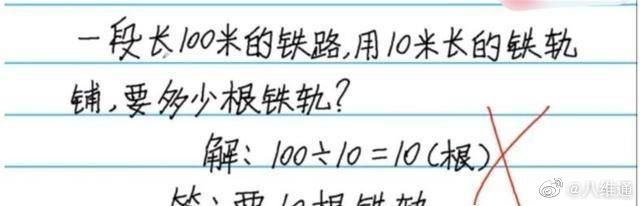 一段长100米的铁路,用10米长的铁轨
铺,要多少根铁轨?
解: 100÷10=10(根)
答:要10根铁轨
@八维通